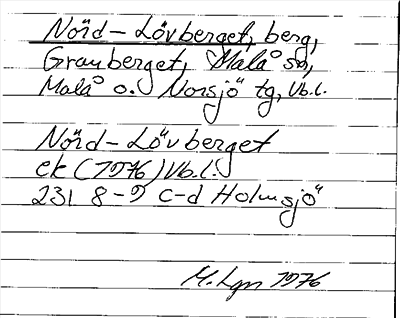 Nörd-Lövberget, berg,
Granberget, Malå sn,
Malå o. Norsjö tg, Vb.l.
Nörd-Lövberget
ek (1976) Vb.l.
23I 8-9 c-d Holmsjö
M.Lgn 1976